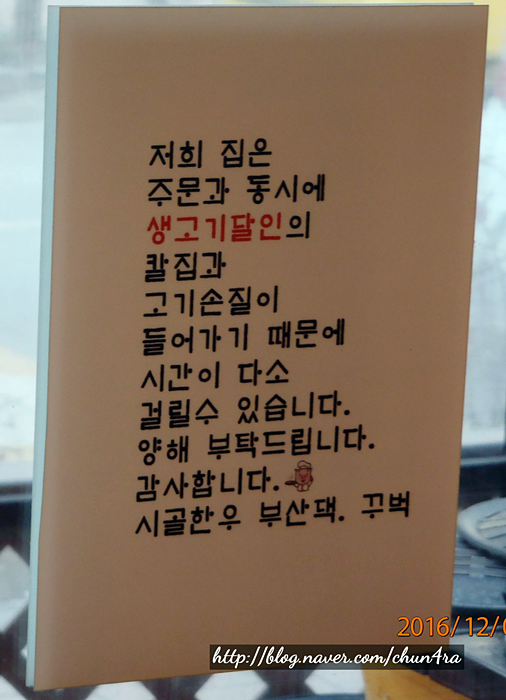 저희 집은
주문과 동시에
생고기달인의
칼집과
고기손질이
들어가기 때문에
시간이 다소
걸릴수 있습니다.
양해 부탁드립니다.
감사합니다.
시골한우 부산댁. 꾸벅
2016/12/0
http://blog.naver.com/chun4ra